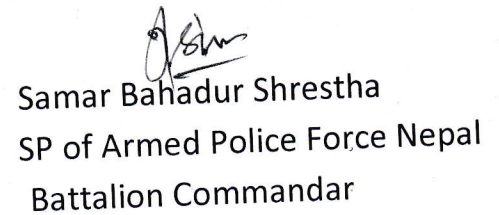 Samar Bahadur Shrestha
SP of Armed Police Force Nepal
Battalion Commandar